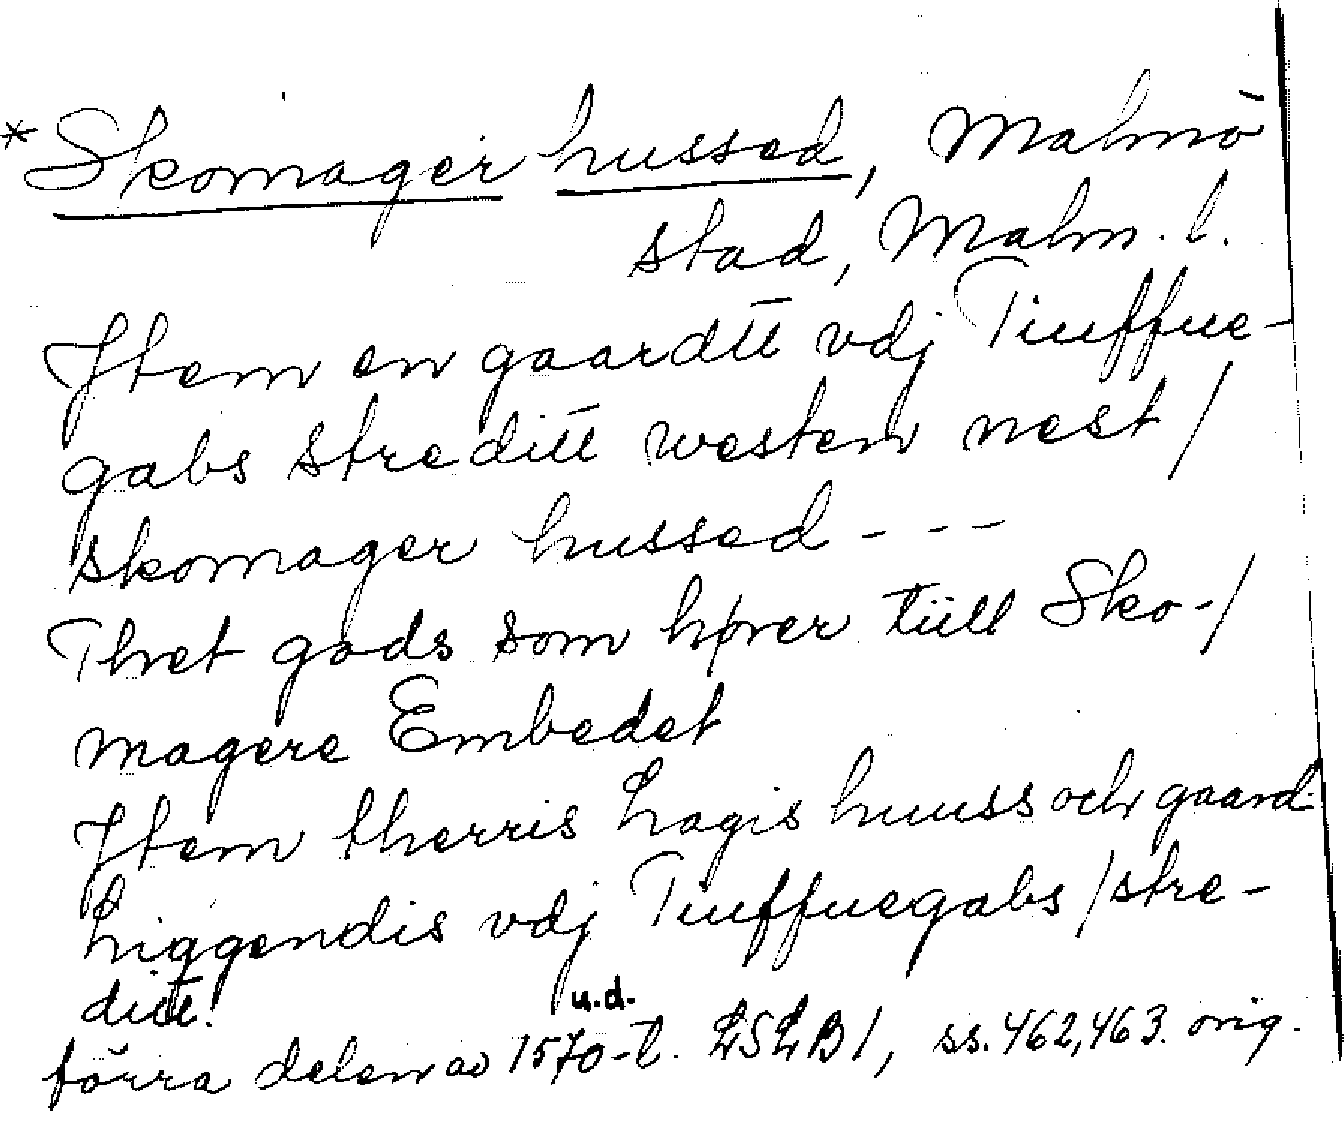 *Skomager hussed, Malmö
stad, Malm. l.
Jtem en gaardtt vdj Tiuffue-
gabs streditt westen nest/
skomager hussed - - -
Thet gods som hører tiill Sko-/
magere Embedet
Jtem therris Lagis huuss och gaard
Liggendis vdj Tiuffuegabs/stre-
ditt.
u.d.
förra delen av 1570-t. LSLB1, ss. 462, 463. orig.